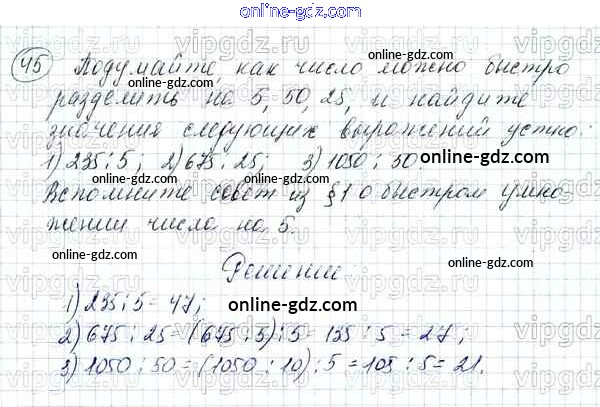 online-gdz.com
45 Подумайте, как число можно быстро
разделить на 5, 50, 25, и найдите
значения следующих выражений устно:
1) 235 : 5; 2) 675 : 25; 3) 1050 : 50.
Вспомните совет из § 1 о быстром умно-
жении числа на 5.
Решение
1) 235 : 5 = 47;
2) 675 : 25 = (675 : 5) : 5 = 135 : 5 = 27;
3) 1050 : 50 = (1050 : 10) : 5 = 105 : 5 = 21.